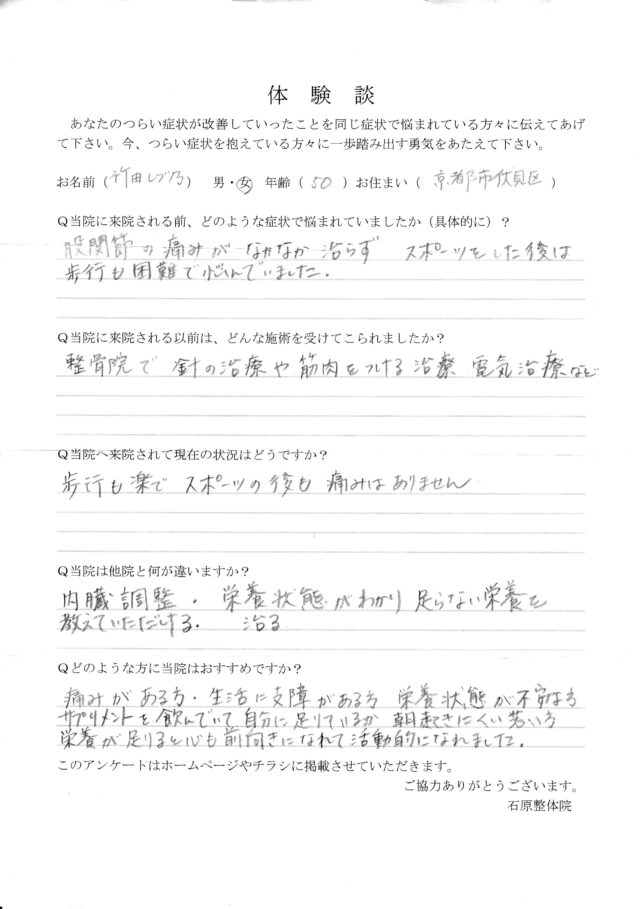 体験談
あなたのつらい症状が改善していったことを同じ症状で悩まれている方々に伝えてあげ
て下さい。今、つらい症状を抱えている方々に一歩踏み出す勇気をあたえて下さい。
お名前（竹田しづ乃）男・女 年齢（50）お住まい（京都市伏見区）
Ｑ当院に来院される前、どのような症状で悩まれていましたか（具体的に）？
股関節の痛みがなかなか治らず スポーツをした後は
歩行も困難で悩んでいました.
Ｑ当院に来院される以前は、どんな施術を受けてこられましたか？
整骨院で 針の治療や筋肉をつける治療 電気治療など
Ｑ当院へ来院されて現在の状況はどうですか？
歩行も楽で スポーツの後も 痛みはありません
Ｑ当院は他院と何が違いますか？
内臓調整・栄養状態がわかり 足らない栄養を
教えていただける. 治る
Ｑどのような方に当院はおすすめですか？
痛みがある方・生活に支障がある方 栄養状態が不安な方
サプリメントを飲んでいて自分に足りているか 朝起きにくい 方
栄養が足りると心も前向きになれて活動的になれました.
このアンケートはホームページやチラシに掲載させていただきます。
ご協力ありがとうございます。
石原整体院